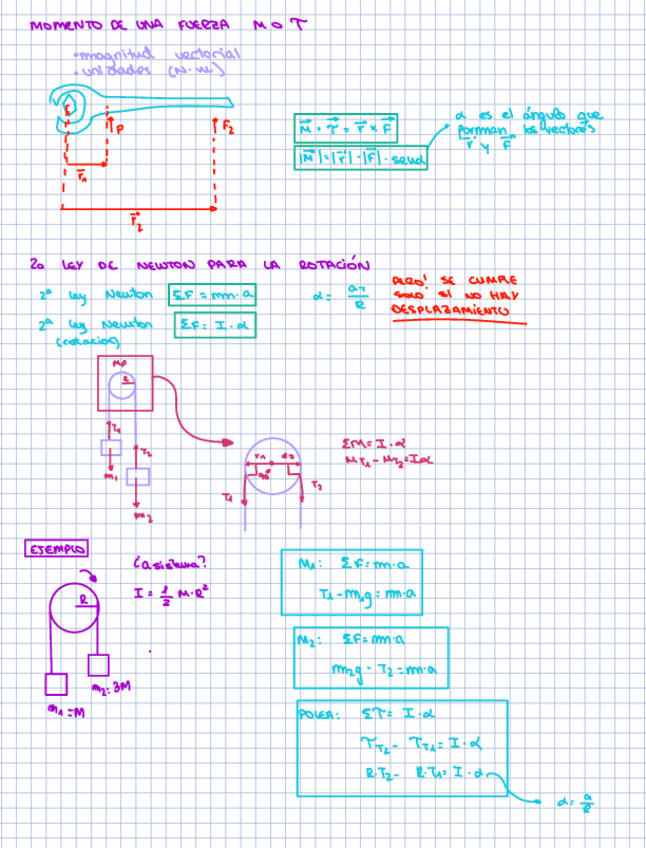 MOMENTO DE UNA FUERZA M O τ
•magnitud vectorial
•unidades (N·m)
F
F₂
r⃗₁
r⃗₂
M⃗ = τ⃗ = r⃗ x F⃗
|M⃗|=|r⃗|·|F⃗|·senα
α es el ángulo que
forman los vectores
r⃗ y F⃗
2a LEY DE NEWTON PARA LA ROTACIÓN
2ª Ley Newton ΣF = m·a
2ª Ley Newton ΣF = I·α
(rotación)
α = aT/R
PERO! SE CUMPLE
SOLO SI NO HAY
DESPLAZAMIENTO
MP
R
T₁
T₂
m₁
m₂
r₁
90°
T₁
T₂
ΣM = I·α
MT₁ - MT₂ = Iα
EJEMPLO
¿a sistema?
I = 1/2 M·R²
R
m₂=3M
m₁=M
M₁: ΣF = m·a
T₁-m₁g = m·a
M₂: ΣF = m·a
m₂g - T₂ = m·a
POLEA: Στ = I·α
τT₂ - τT₁ = I·α
R·T₂ - R·T₁ = I·α
α = a/R